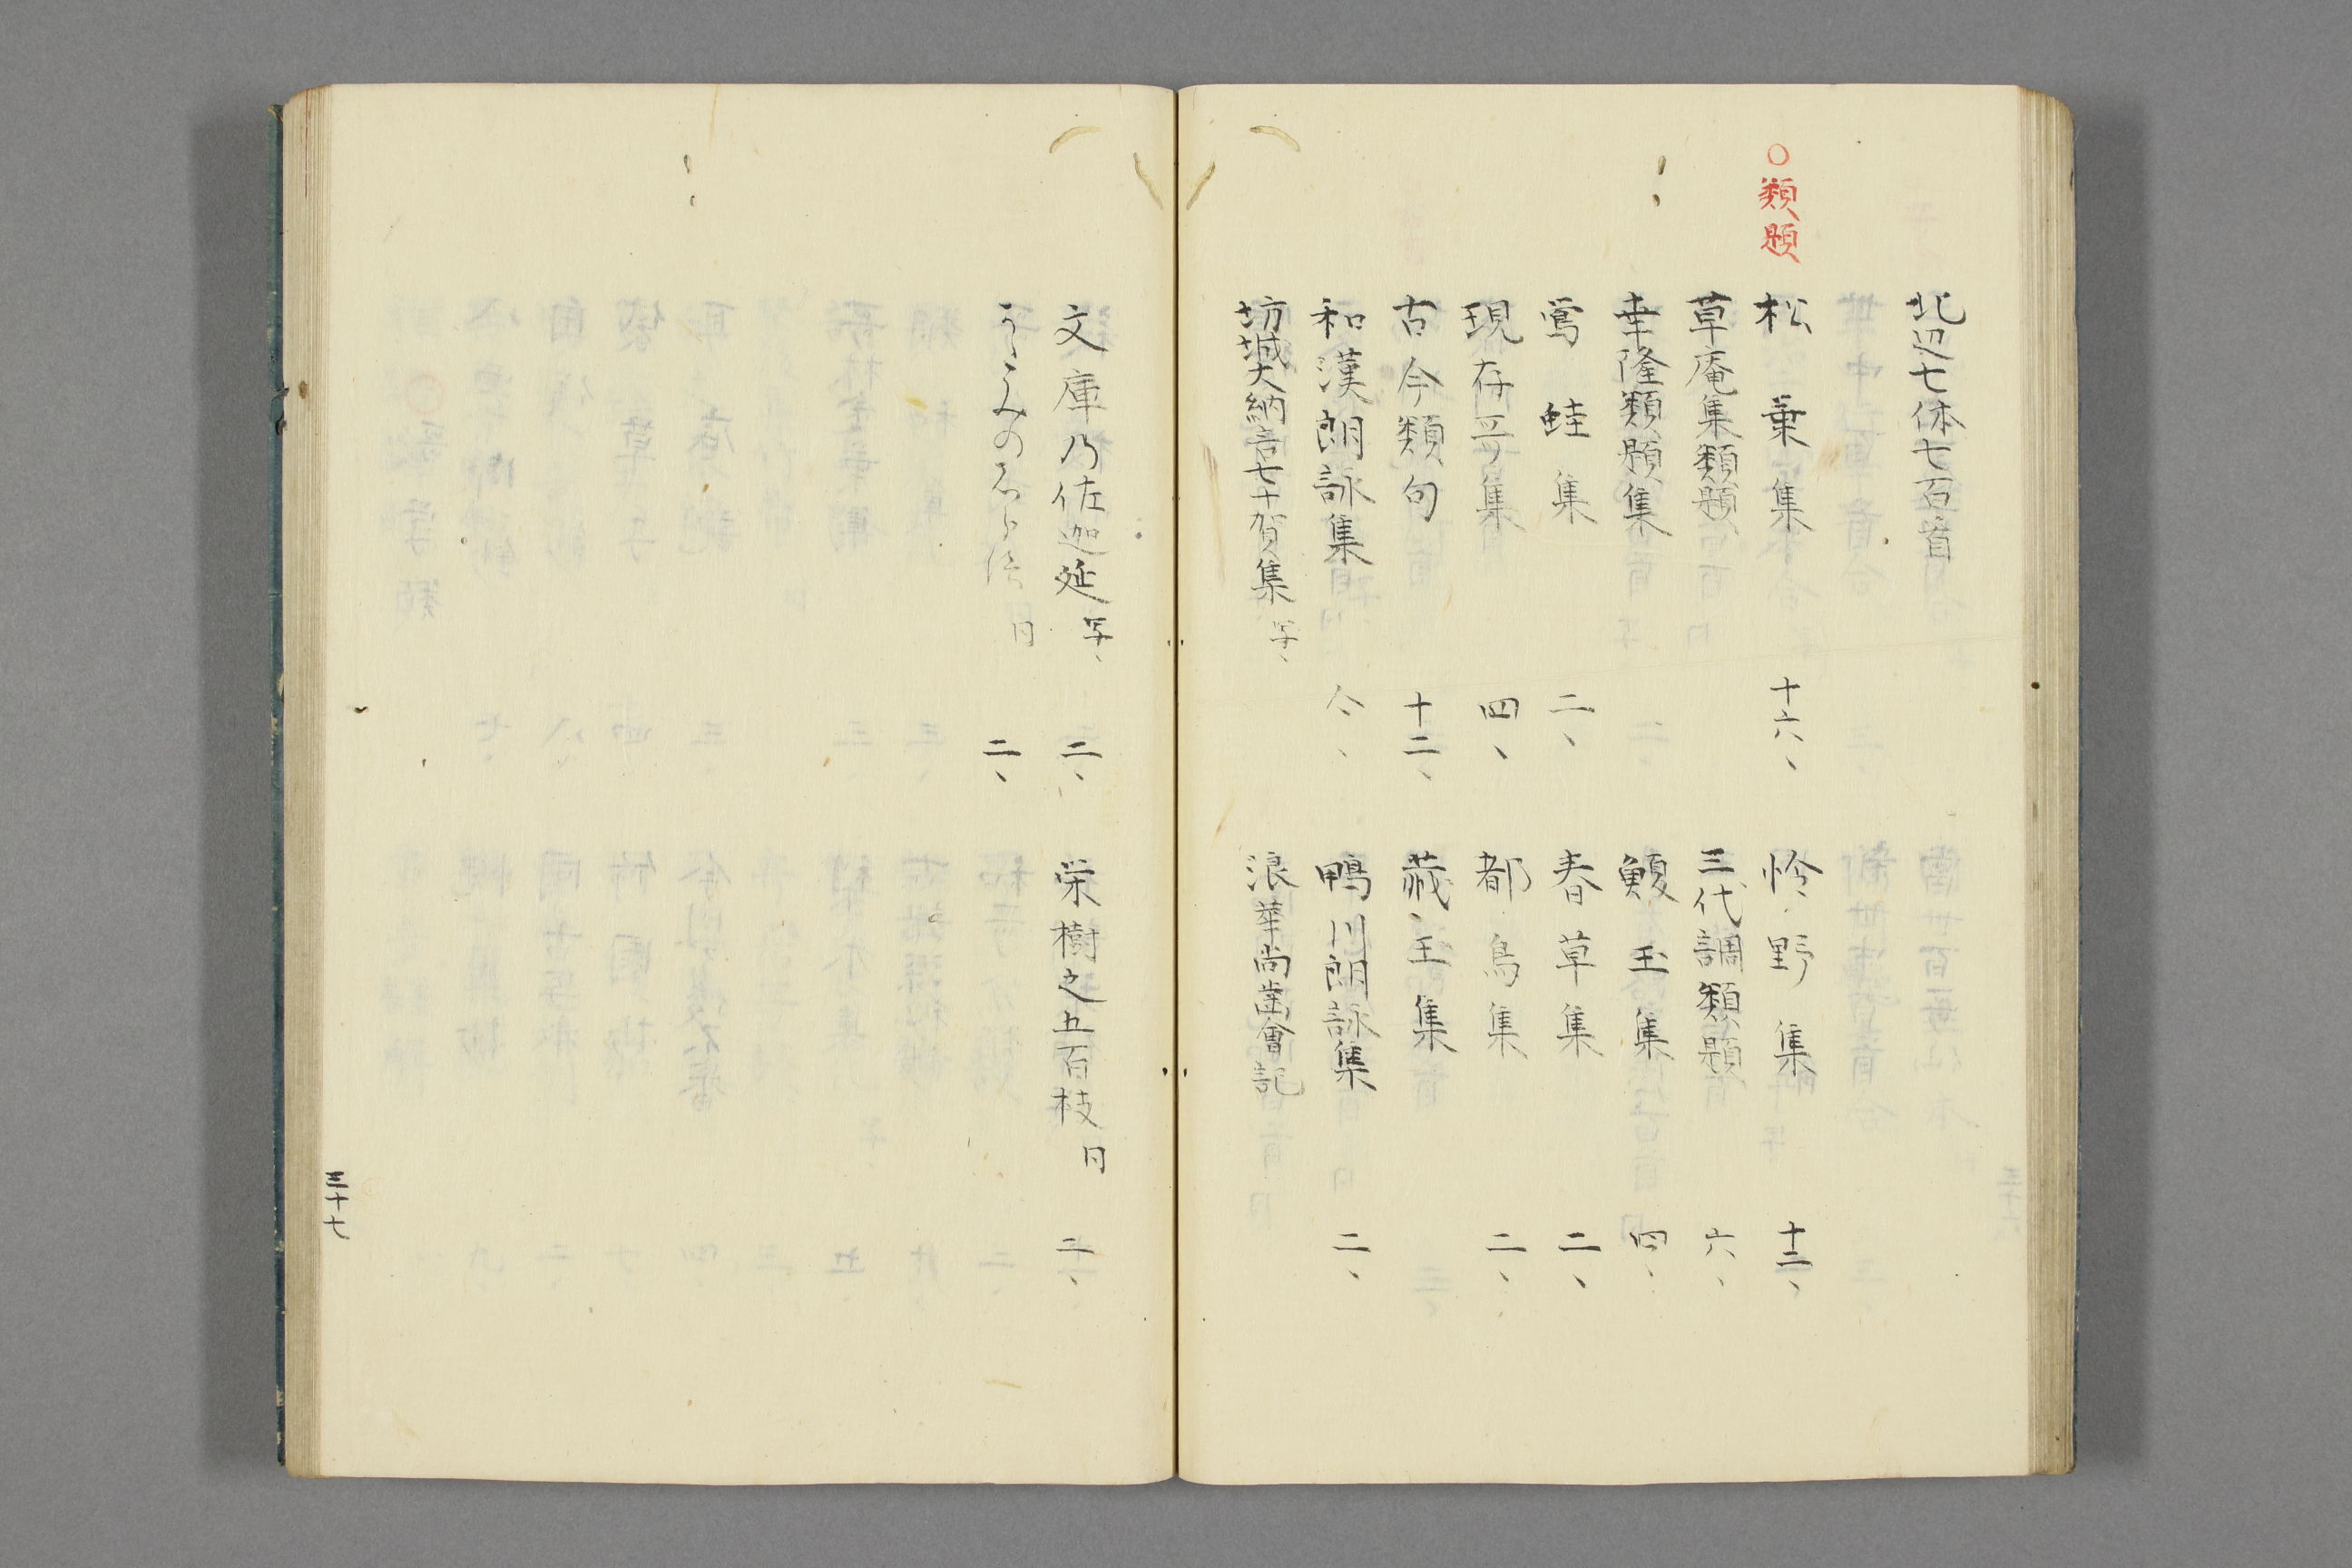 北辺七体七百首
○類題
松葉集 十六、
怜野集 十二、
草庵集類題
三代調類題 六、
幸隆類題集
鰒玉集 四、
鶯蛙集 二、
春草集 二、
現存哥集 四、
都鳥集 二、
古今類句 十二、
蔵玉集
和漢朗詠集
鴨川朗詠集 二、
坊城大納言七十賀集 写、
浪華尚歯會記
文庫乃佐迦延 写、 二、
栄樹之五百枝 日 二、
日 二、
三十七